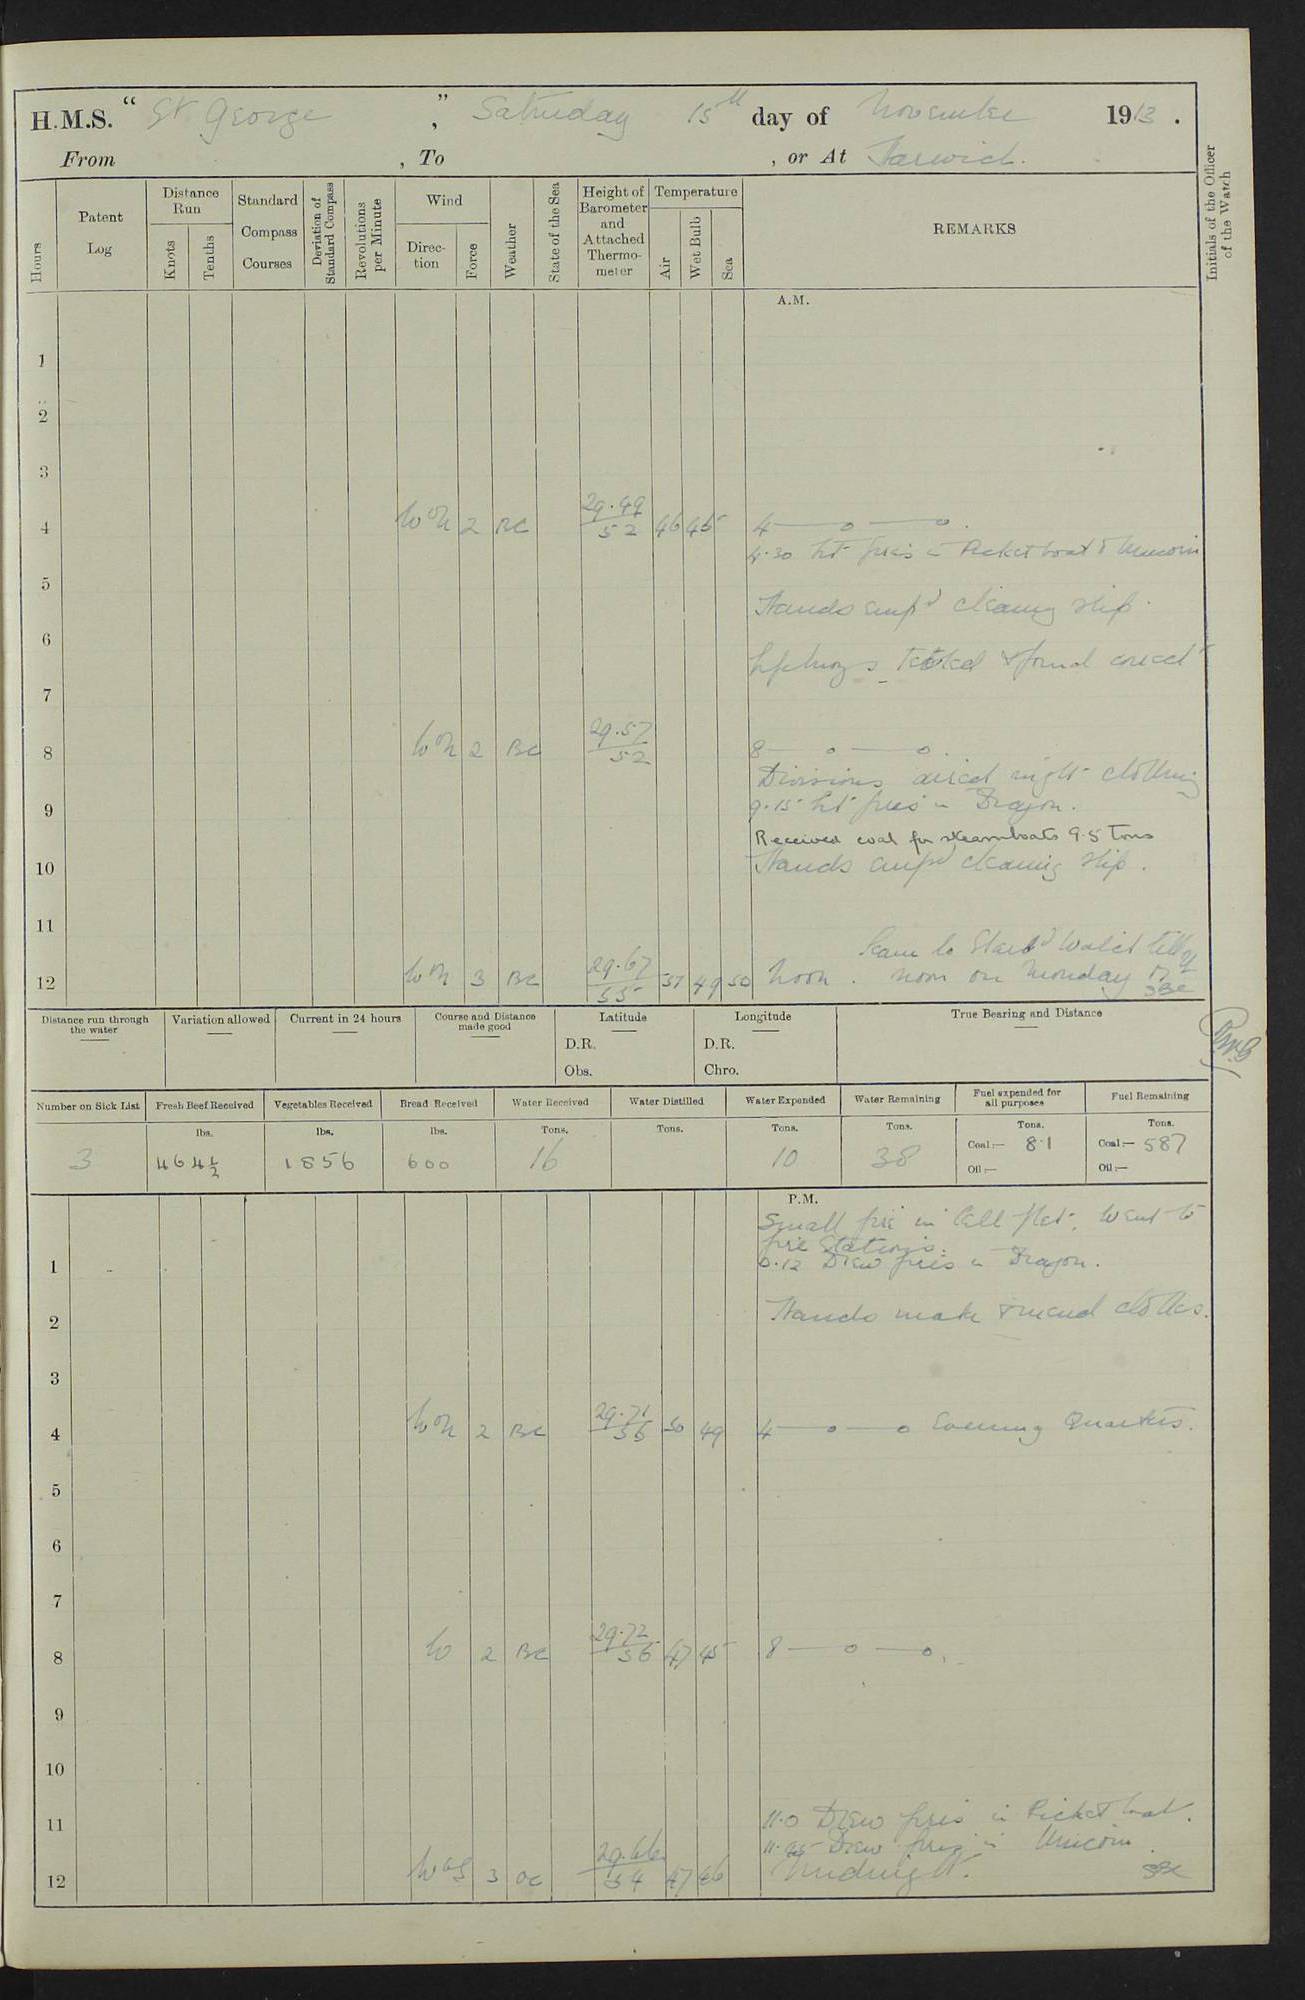 H.M.S. “ St. George ”, Saturday 15th day of November 1913.
From , To , or At Harwich.
Hours
Patent Log
Distance Run
Knots
Tenths
Standard Compass Courses
Deviation of Standard Compass
Revolutions per Minute
Wind
Direction
Force
Weather
State of the Sea
Height of Barometer and Attached Thermometer
Temperature
Air
Wet Bulb
Sea
REMARKS
Initials of the Officer of the Watch
A.M.
1
2
3
4 WbN 2 BC 29.49/52 46 45 4 —o—o.
4.30 Lit fires in Picket boat & Unicorn
5
Hands emp'd cleaning ship.
6
Lifebuoys tested & found correct
7
8 WbN 2 BC 29.57/52 8 —o—o.
Divisions aired night clothing
9 9.15 Lit fires in Dragon.
Received coal for steamboats 9.5 Tons
10 Hands emp'd cleaning ship.
11
Leave to Starbd Watch till
12 WbN 3 BC 29.67/55 51 49 50 Noon. noon on Monday 17
Distance run through the water
Variation allowed
Current in 24 hours
Course and Distance made good
Latitude
D.R.
Obs.
Longitude
D.R.
Chro.
True Bearing and Distance
Number on Sick List
3
Fresh Beef Received
lbs.
464½
Vegetables Received
lbs.
1856
Bread Received
lbs.
600
Water Received
Tons.
16
Water Distilled
Tons.
Water Expended
Tons.
10
Water Remaining
Tons.
38
Fuel expended for all purposes
Tons.
Coal:— 8.1
Oil:—
Fuel Remaining
Tons.
Coal:— 587
Oil:—
P.M.
Small fire in Cell flat. Went to
fire Stations.
1 0.12 Drew fires in Dragon.
2 Hands make & mend clothes.
3
4 WbN 2 BC 29.71/56 50 49 4 —o—o Evening Quarters.
5
6
7
8 W 2 BC 29.72/56 47 45 8 —o—o.
9
10
11 11.0 Drew fires in Picket boat.
Drew fires in Unicorn.
12 WbS 3 OC 29.66/54 47 46 Midnight.